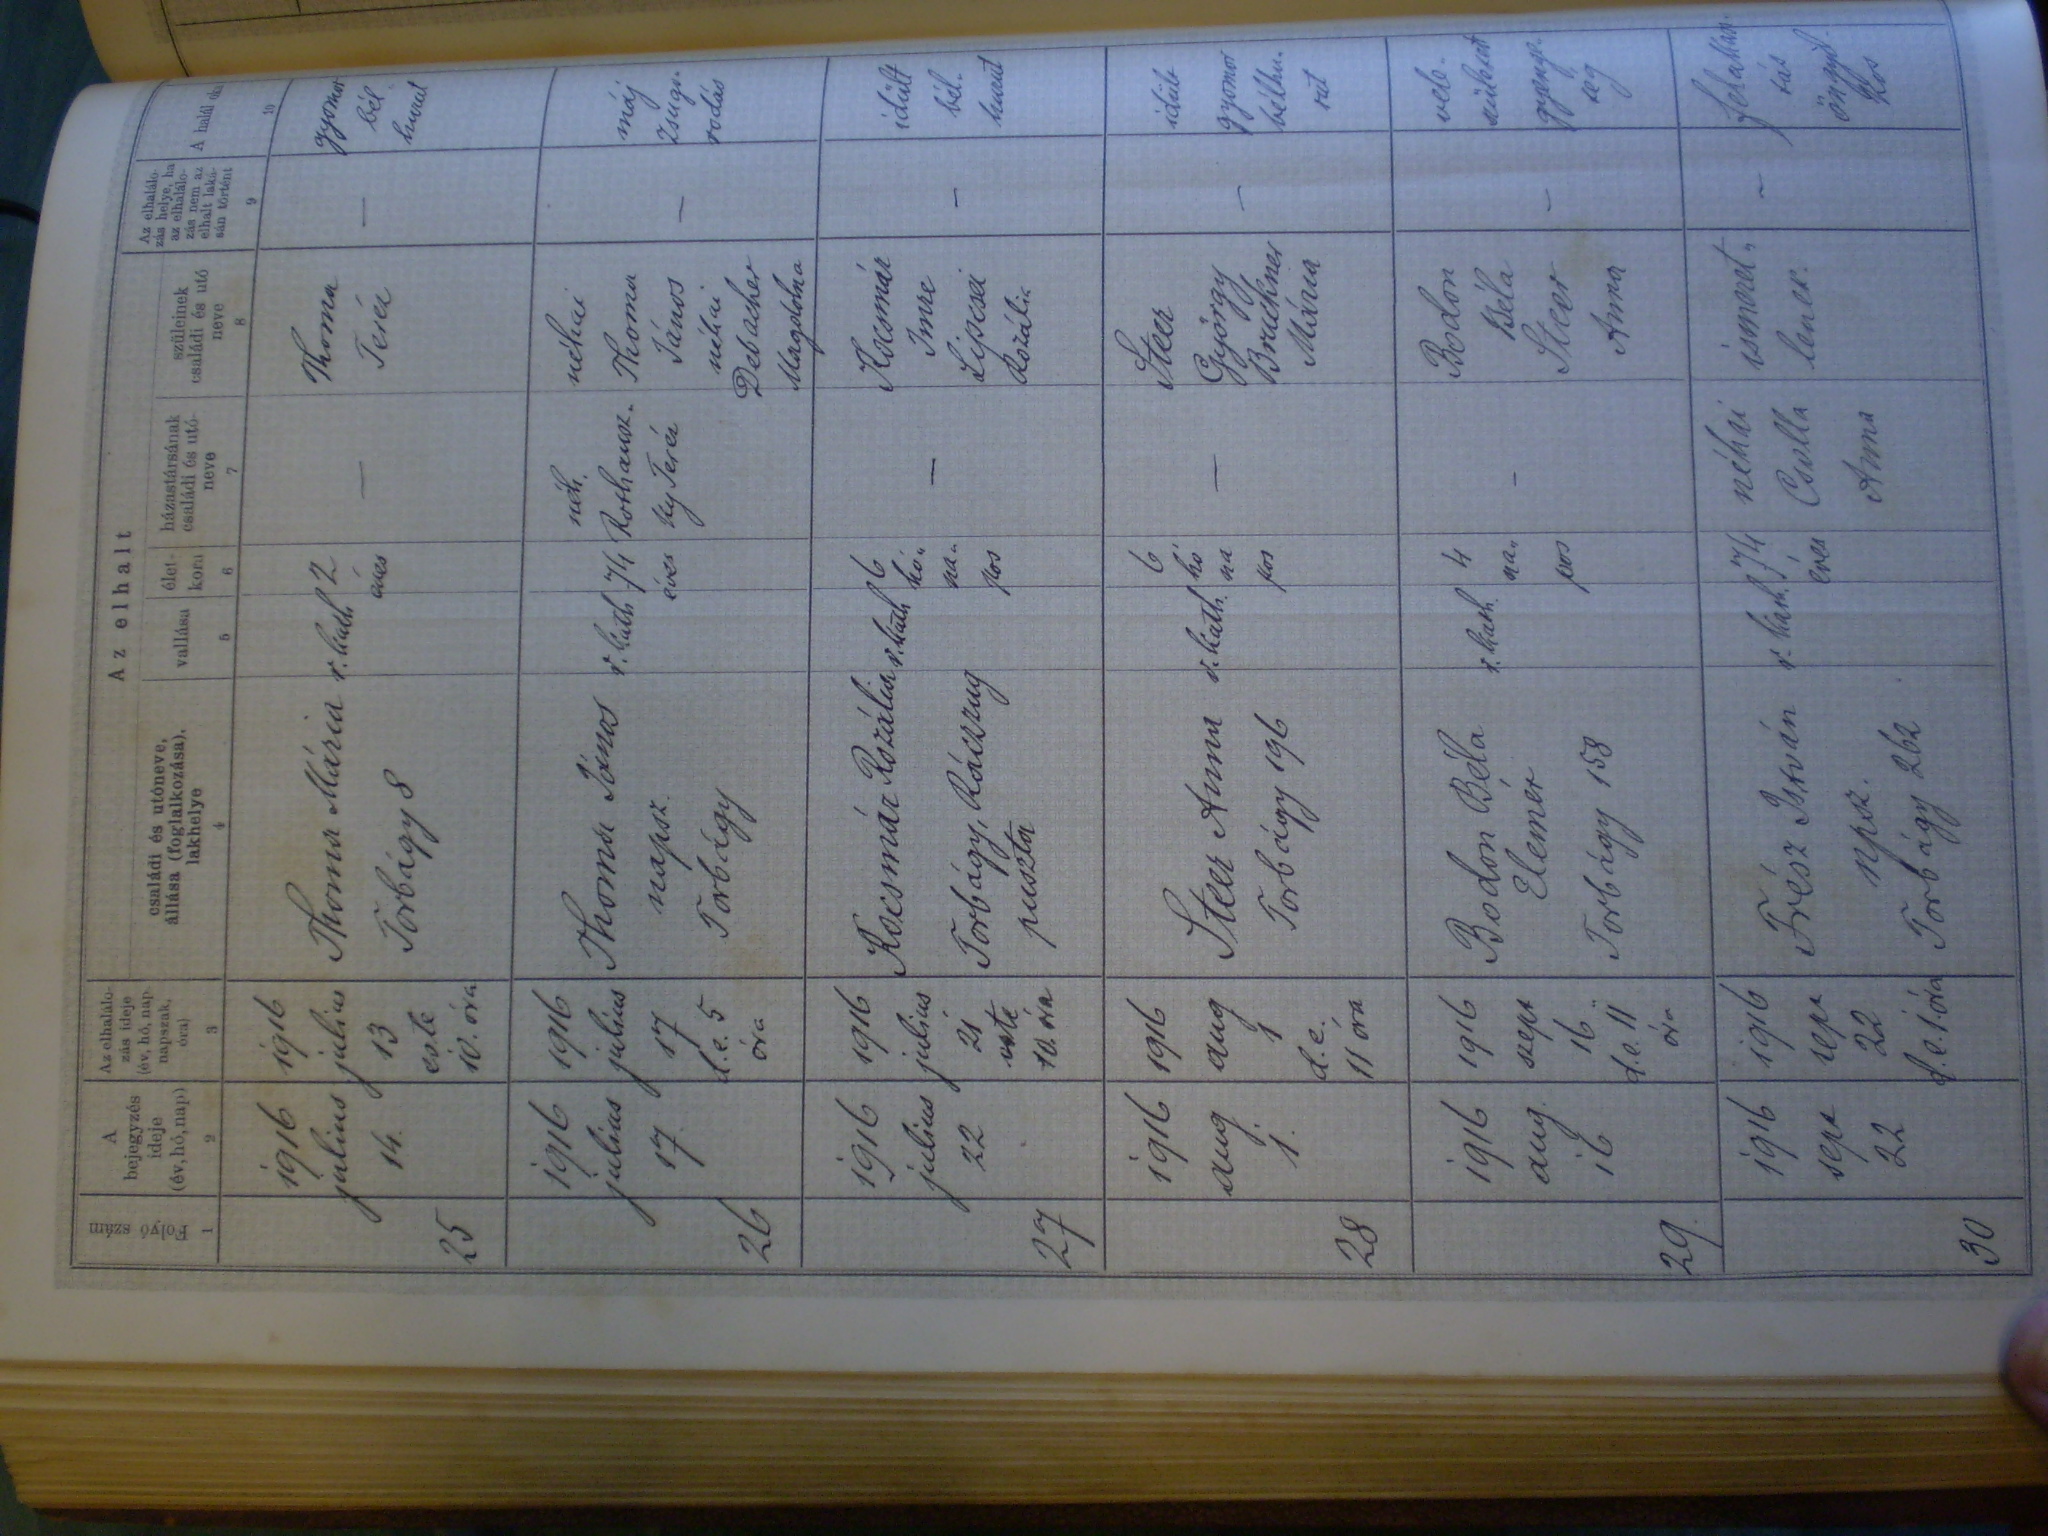 Az elhalt
Folyó szám
A
bejegyzés
ideje
(év, hó, nap)
Az elhalálo-
zás ideje
(év, hó, nap,
napszak,
óra)
családi és utóneve,
állása (foglalkozása),
lakhelye
vallása
élet-
kora
házastársának
családi és utó-
neve
szüleinek
családi és utó
neve
Az elhalálo-
zás helye, ha
az elhalálo-
zás nem az
elhalt laká-
sán történt
A halál oka
1
2
3
4
5
6
7
8
9
10
25
1916
julius
14.
1916
julius
13
este
10. óra
Thoma Mária
Torbágy 8
r. kath
2
éves
—
Thoma
Teréz
—
gyomor
bél
hurut
26
1916
julius
17.
1916
julius
17
d.e. 5
óra
Thoma János
napsz.
Torbágy
r. kath
74
éves
néh.
Rothausz-
ky Teréz
néhai
Thoma
János
néhai
Debacher
Magdolna
—
máj
zsugo-
rodás
27
1916
julius
22
1916
julius
21
este
10. óra
Kocsmár Rozália
Torbágy, Ráczzug
puszta
r. kath
6
hó-
na-
pos
—
Kocsmár
Imre
Lipcsei
Rozália
—
idült
bél-
hurut
28
1916
aug
1.
1916
aug
1
d.e.
11 óra
Steer Anna
Torbágy 196
r. kath.
6
hó
na
pos
—
Steer
György
Brückner
Mária
—
idült
gyomor
bélhu-
rut
29.
1916
aug.
16
1916
szept
16
d.e. 11
óra
Bodon Béla
Elemér
Torbágy 158
r. kath.
4
na-
pos
—
Bodon
Béla
Steer
Anna
—
vele-
született
gyenge-
ség
30
1916
sept
22
1916
sept
22
d.e. 1. óra
Frész István
npsz.
Torbágy 262
r. kath.
74
éves
néhai
Csolla
Anna
ismeret-
lenek.
—
öngyil-
kos